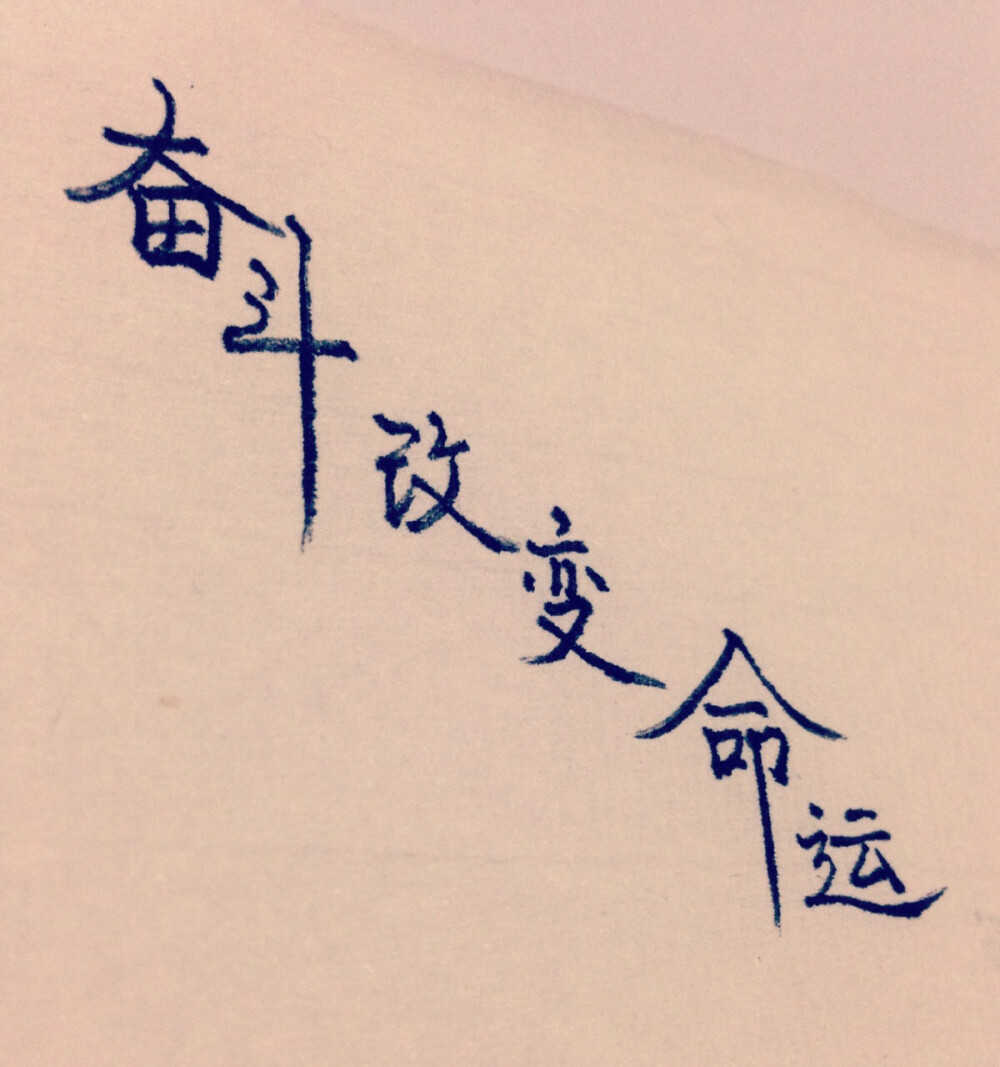 奋斗改变命运